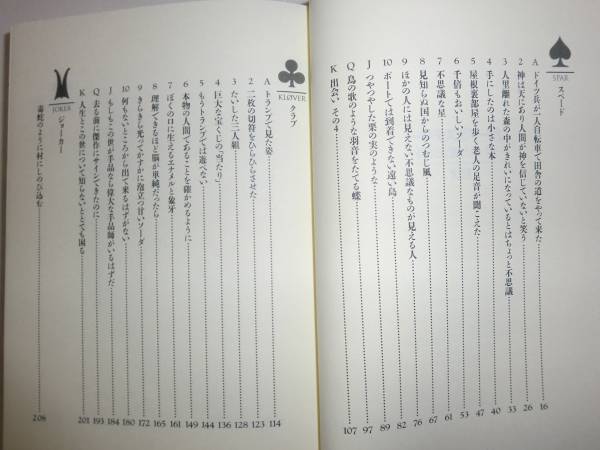 SPAR
スペード
A ドイツ兵が一人自転車で田舎の道をやって来た 16
2 神は天にあり人間が神を信じていないと笑う 26
3 人里離れた森の中がきれいになっているとはちょっと不思議 33
4 手にしたのは小さな本 40
5 屋根裏部屋を歩く老人の足音が聞こえた 47
6 千倍もおいしいソーダ 53
7 不思議な星 61
8 見知らぬ国からのつむじ風 67
9 ほかの人には見えない不思議なものが見える人 76
10 ボートでは到着できない遠い島 82
J つやつやした栗の実のような 89
Q 鳥の歌のような羽音をたてる蝶 97
K 出会い その4 107
KLØVER
クラブ
A トランプで見た姿 114
2 二枚の切符をひらひらさせた 123
3 たいした二人組 128
4 巨大な宝くじの「当たり」 136
5 もうトランプでは遊べない 144
6 本物の人間であることを確かめるように 149
7 ぼくの口に生えるエナメルと象牙 161
8 理解できるほど脳が単純だったら 165
9 きらきら光ってかすかに泡立つ甘いソーダ 172
10 何もないところから出て来るはずがない 180
J もしもこの世が手品なら偉大な手品師がいるはずだ 184
Q 去る前に傑作にサインできたのに 193
K 人生とこの世について知らないととても困る 201
JOKER
ジョーカー
毒蛇のように村にしのび込む 208